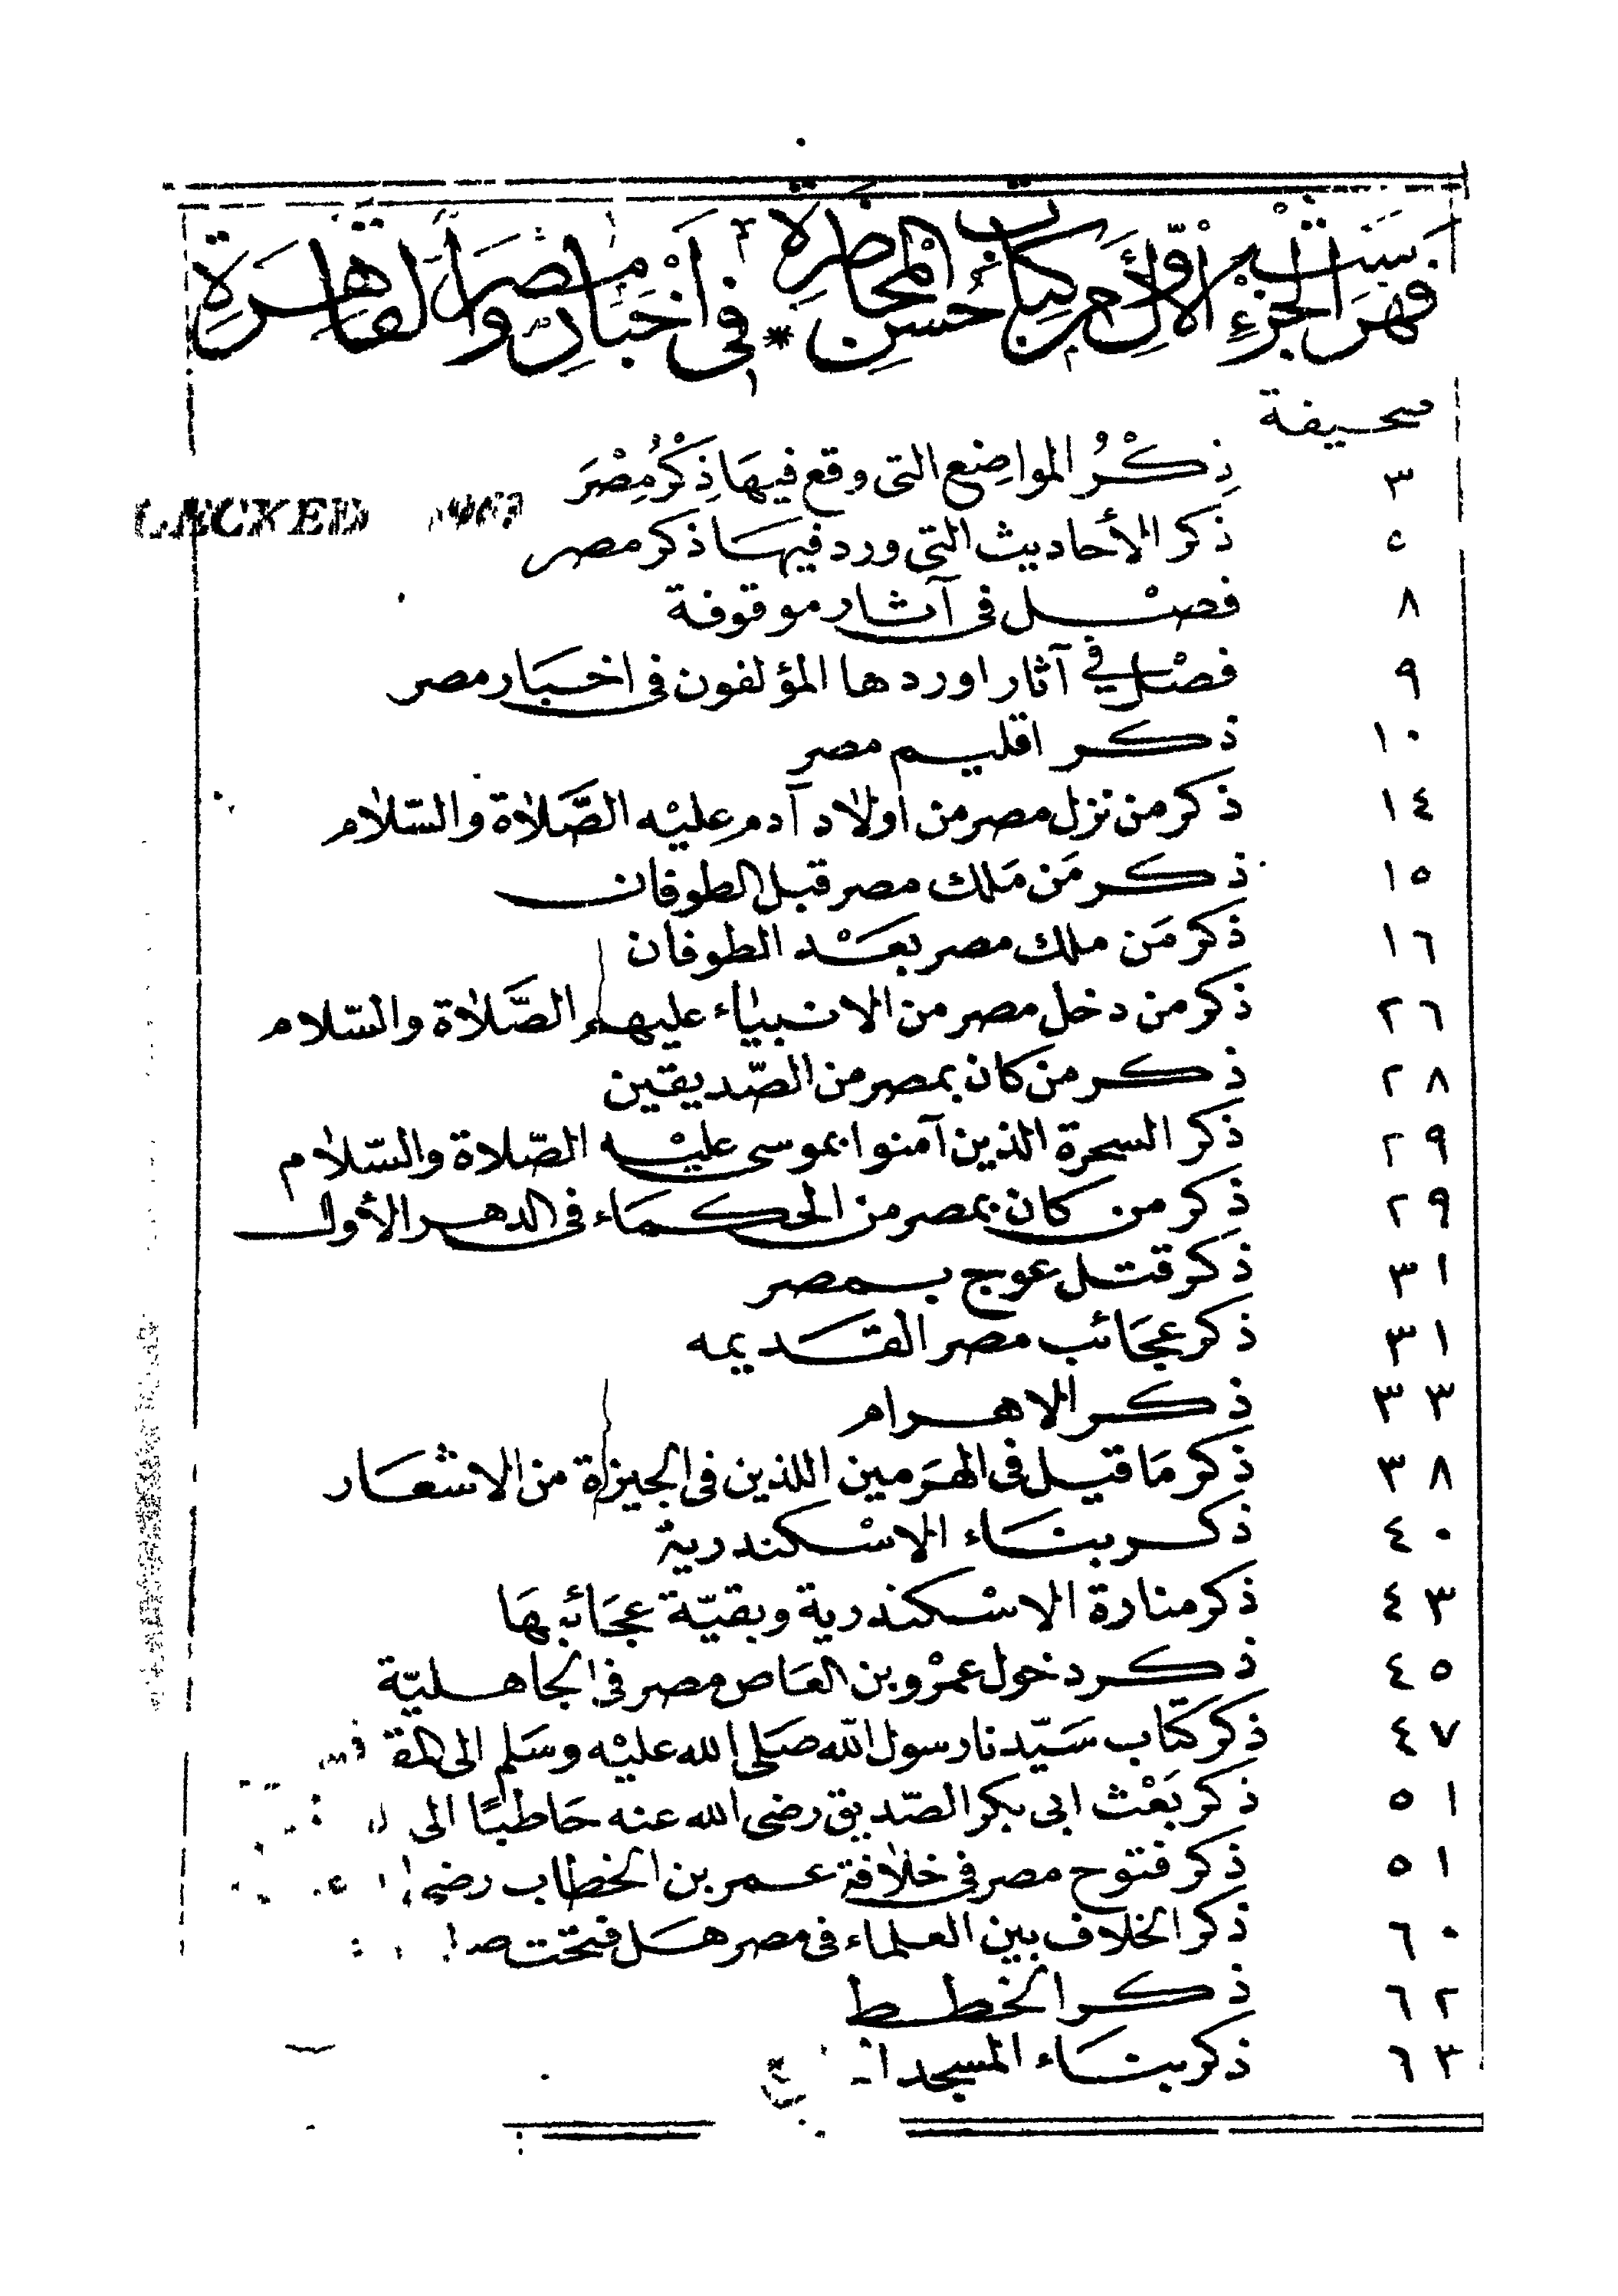 فهرست الجزء الأول من كتاب حسن المحاضرة * في أخبار مصر والقاهرة
صحيفة
٣ ذِكْرُ المواضِع التى وقع فيهَا ذِكْرُ مِصْرَ
٥ ذكر الأحاديث التى ورد فيهَا ذكر مصر
٨ فصْل فى آثار موقوفة
٩ فصْل في آثار اوردها المؤلفون فى اخبار مصر
١٠ ذكر اقليم مصر
١٤ ذكر من نزل مصر من اولاد آدم عليْه الصَّلاة والسّلام
١٥ ذكر مَن مَلك مصر قبل الطوفان
١٦ ذكر مَن ملك مصر بعَْد الطوفان
٢٦ ذكر من دخل مصر من الانبياء عليهم الصَّلاة والسّلام
٢٨ ذكر من كان بمصر من الصّديقين
٢٩ ذكر السحرة الذين آمنوا بموسى عليْه الصّلاة والسّلام
٢٩ ذكر من كان بمصر من الحكمَاء فى الدهر الأول
٣١ ذكر قتل عوج بمصر
٣١ ذكر عجَائب مصر القَديمه
٣٣ ذكر الاهرام
٣٨ ذكر مَا قيل فى الهرَمين اللذين فى الجيزة من الاشعَار
٤٠ ذكر بنَاء الاسْكندرية
٤٣ ذكر منارة الاسْكندرية وبقيّة عجَائبهَا
٤٥ ذكر دخول عمْرو بن العَاص مصر فى الجاهليّة
٤٧ ذكر كتَاب سَيّدنا رسول اللّه صَلى الله عليْه وسَلم الى المقوقس
٥١ ذكر بَعْث ابى بكر الصّديق رضى الله عنه حَاطبًا الى
٥١ ذكر فتوح مصر فى خلافة عمر بن الخطاب رضى
٦٠ ذكر الخلاف بين العلماء فى مصر هَل فتحت
٦٢ ذكر الخطط
٦٣ ذكر بنَاء المسجد